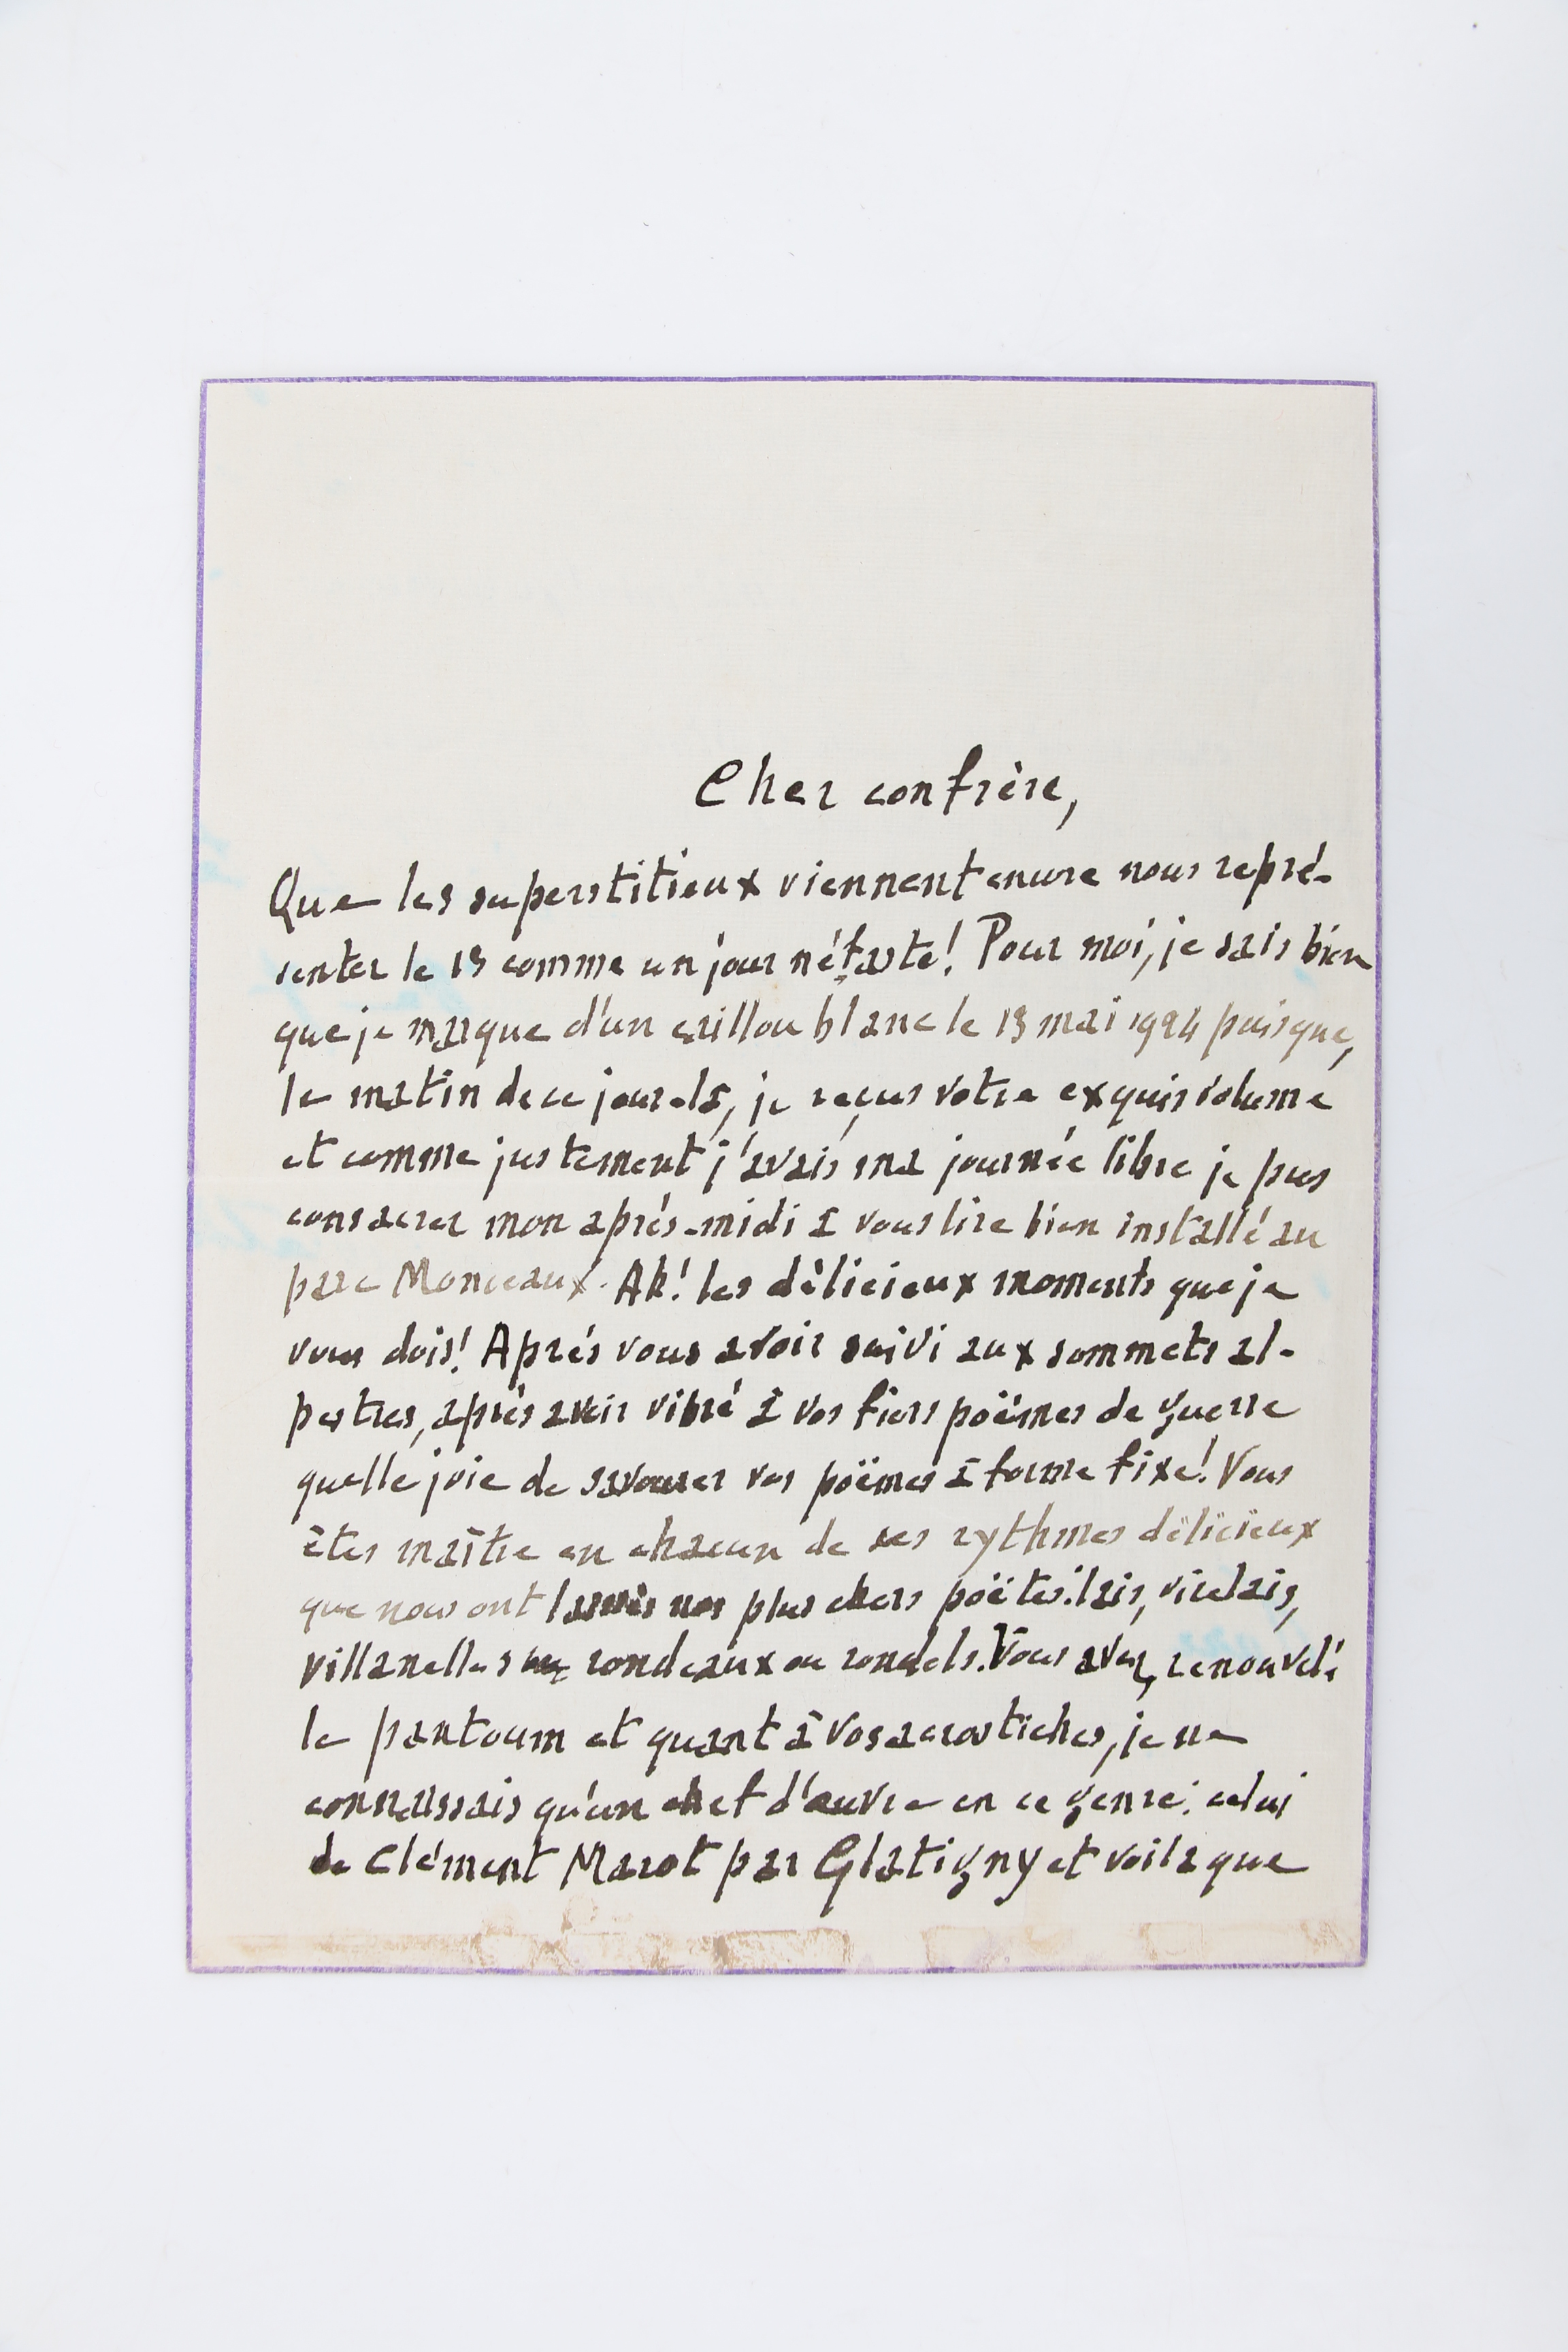 Cher confrère,
Que les superstitieux viennent encore nous repré-
senter le 13 comme un jour néfaste! Pour moi, je sais bien
que je marque d'un caillou blanc le 13 mai 1924 puisque,
le matin de ce jour-là, je reçus votre exquis volume
et comme justement j'avais ma journée libre je pus
consacrer mon après-midi à vous lire bien installé au
parc Monceaux. Ah! les délicieux moments que je
vous dois! Après vous avoir suivi aux sommets al-
pestres, après avoir vibré à vos fiers poëmes de guerre
quelle joie de savourer vos poëmes à forme fixe! Vous
êtes maître en chacun de ces rythmes délicieux
que nous ont laissés nos plus chers poëtes: lais, virelais,
villanelles rondeaux ou rondels. Vous avez renouvelé
le pantoum et quant à vos acrostiches, je ne
connaissais qu'un chef d'œuvre en ce genre: celui
de Clément Marot par Glatigny et voilà que